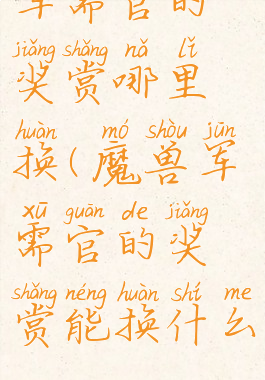 军需官的
jiǎng shǎng nǎ lǐ
奖赏哪里
huàn mó shòu jūn
换(魔兽军
xū guān de jiǎng
需官的奖
shǎng néng huàn shí me
赏能换什么